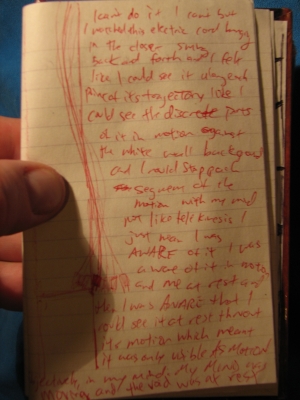 I can't do it I can't but
I noticed this electric cord hung
in the closet swing
back and forth and I felt
like I could see it along each
of its trajectory like I
could see the discrete parts
of it in motion against
the white wall
and I could stop each
segment of the
motion with my mind
not like telekinesis I
just mean I was
AWARE of it I was
aware of it in motion
and me at rest and
then I was AWARE that I
could see it at rest throughout
its motion which meant
it was only visible AS MOTION
in my mind. My MIND was
moving and the was at rest